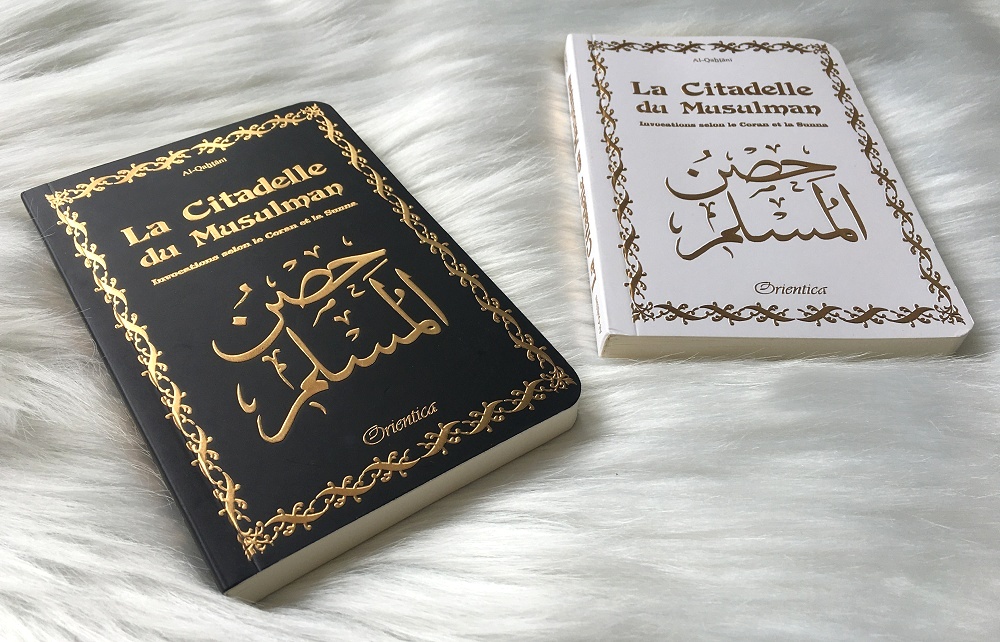 Al-Qaḥṭânî
La Citadelle
du Musulman
Invocations selon le Coran et la Sunna
حصن
المسلم
Orientica
Al-Qaḥṭânî
La Citadelle
du Musulman
Invocations selon le Coran et la Sunna
حصن
المسلم
Orientica